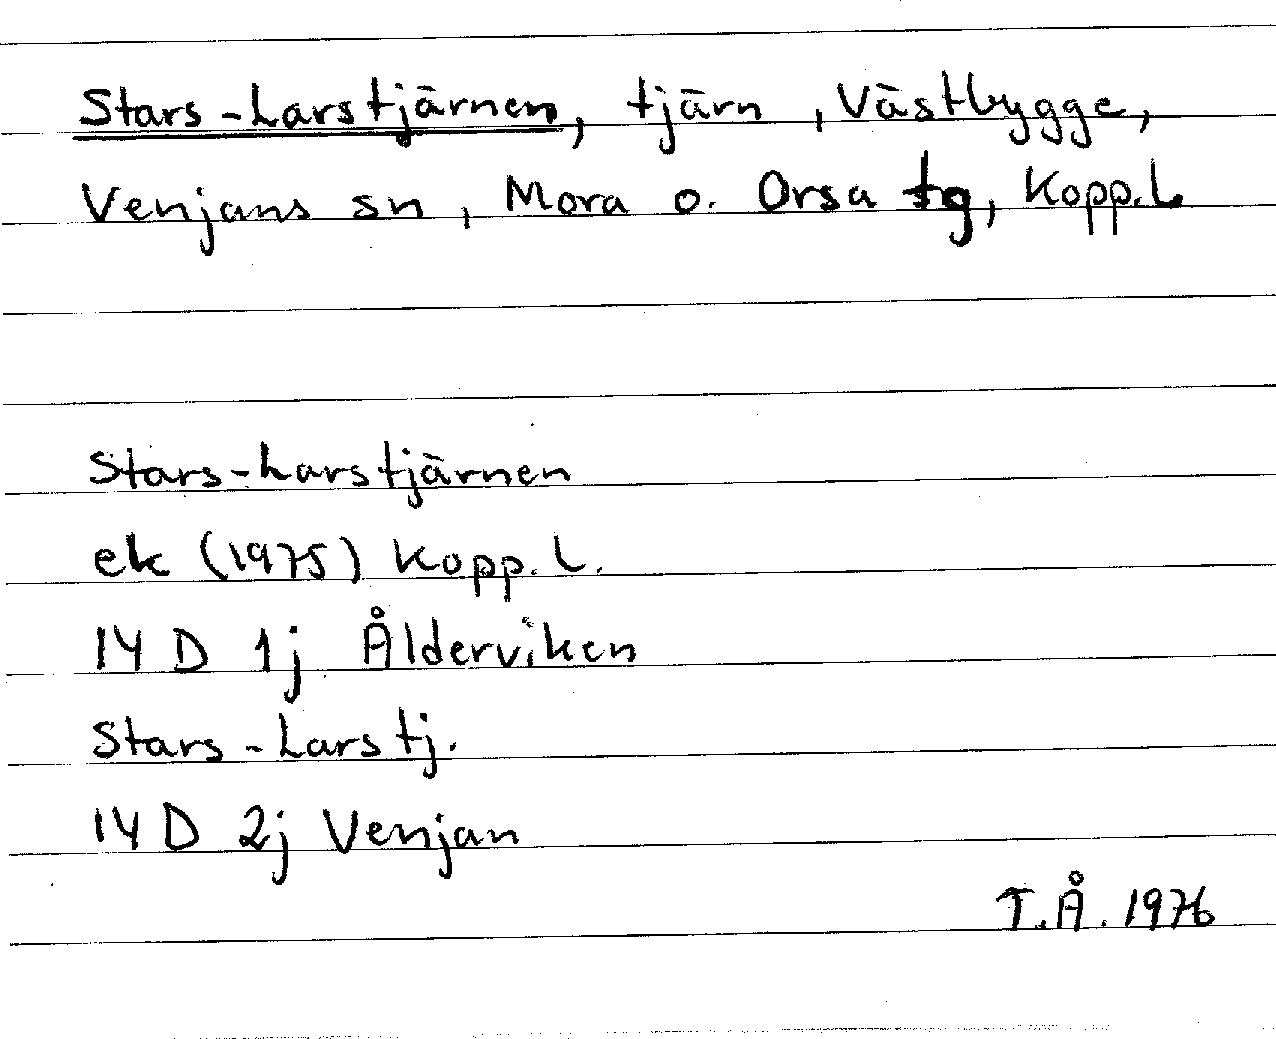 Stars-Larstjärnen, tjärn, Västbygge,
Venjans sn, Mora o. Orsa tg, Kopp.L
Stars-Larstjärnen
ek (1975) Kopp. L.
14 D 1j Ålderviken
Stars-Larstj.
14 D 2j Venjan
T.Å. 1976